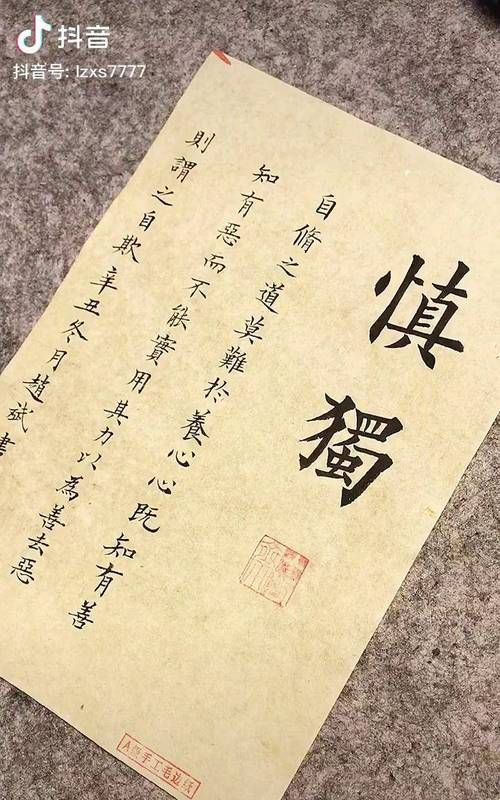 抖音
抖音号: lzxs7777
慎獨
自脩之道莫難於養心心既知有善
知有惡而不能實用其力以為善去惡
則謂之自欺辛丑冬月趙斌書
手工毛边纸